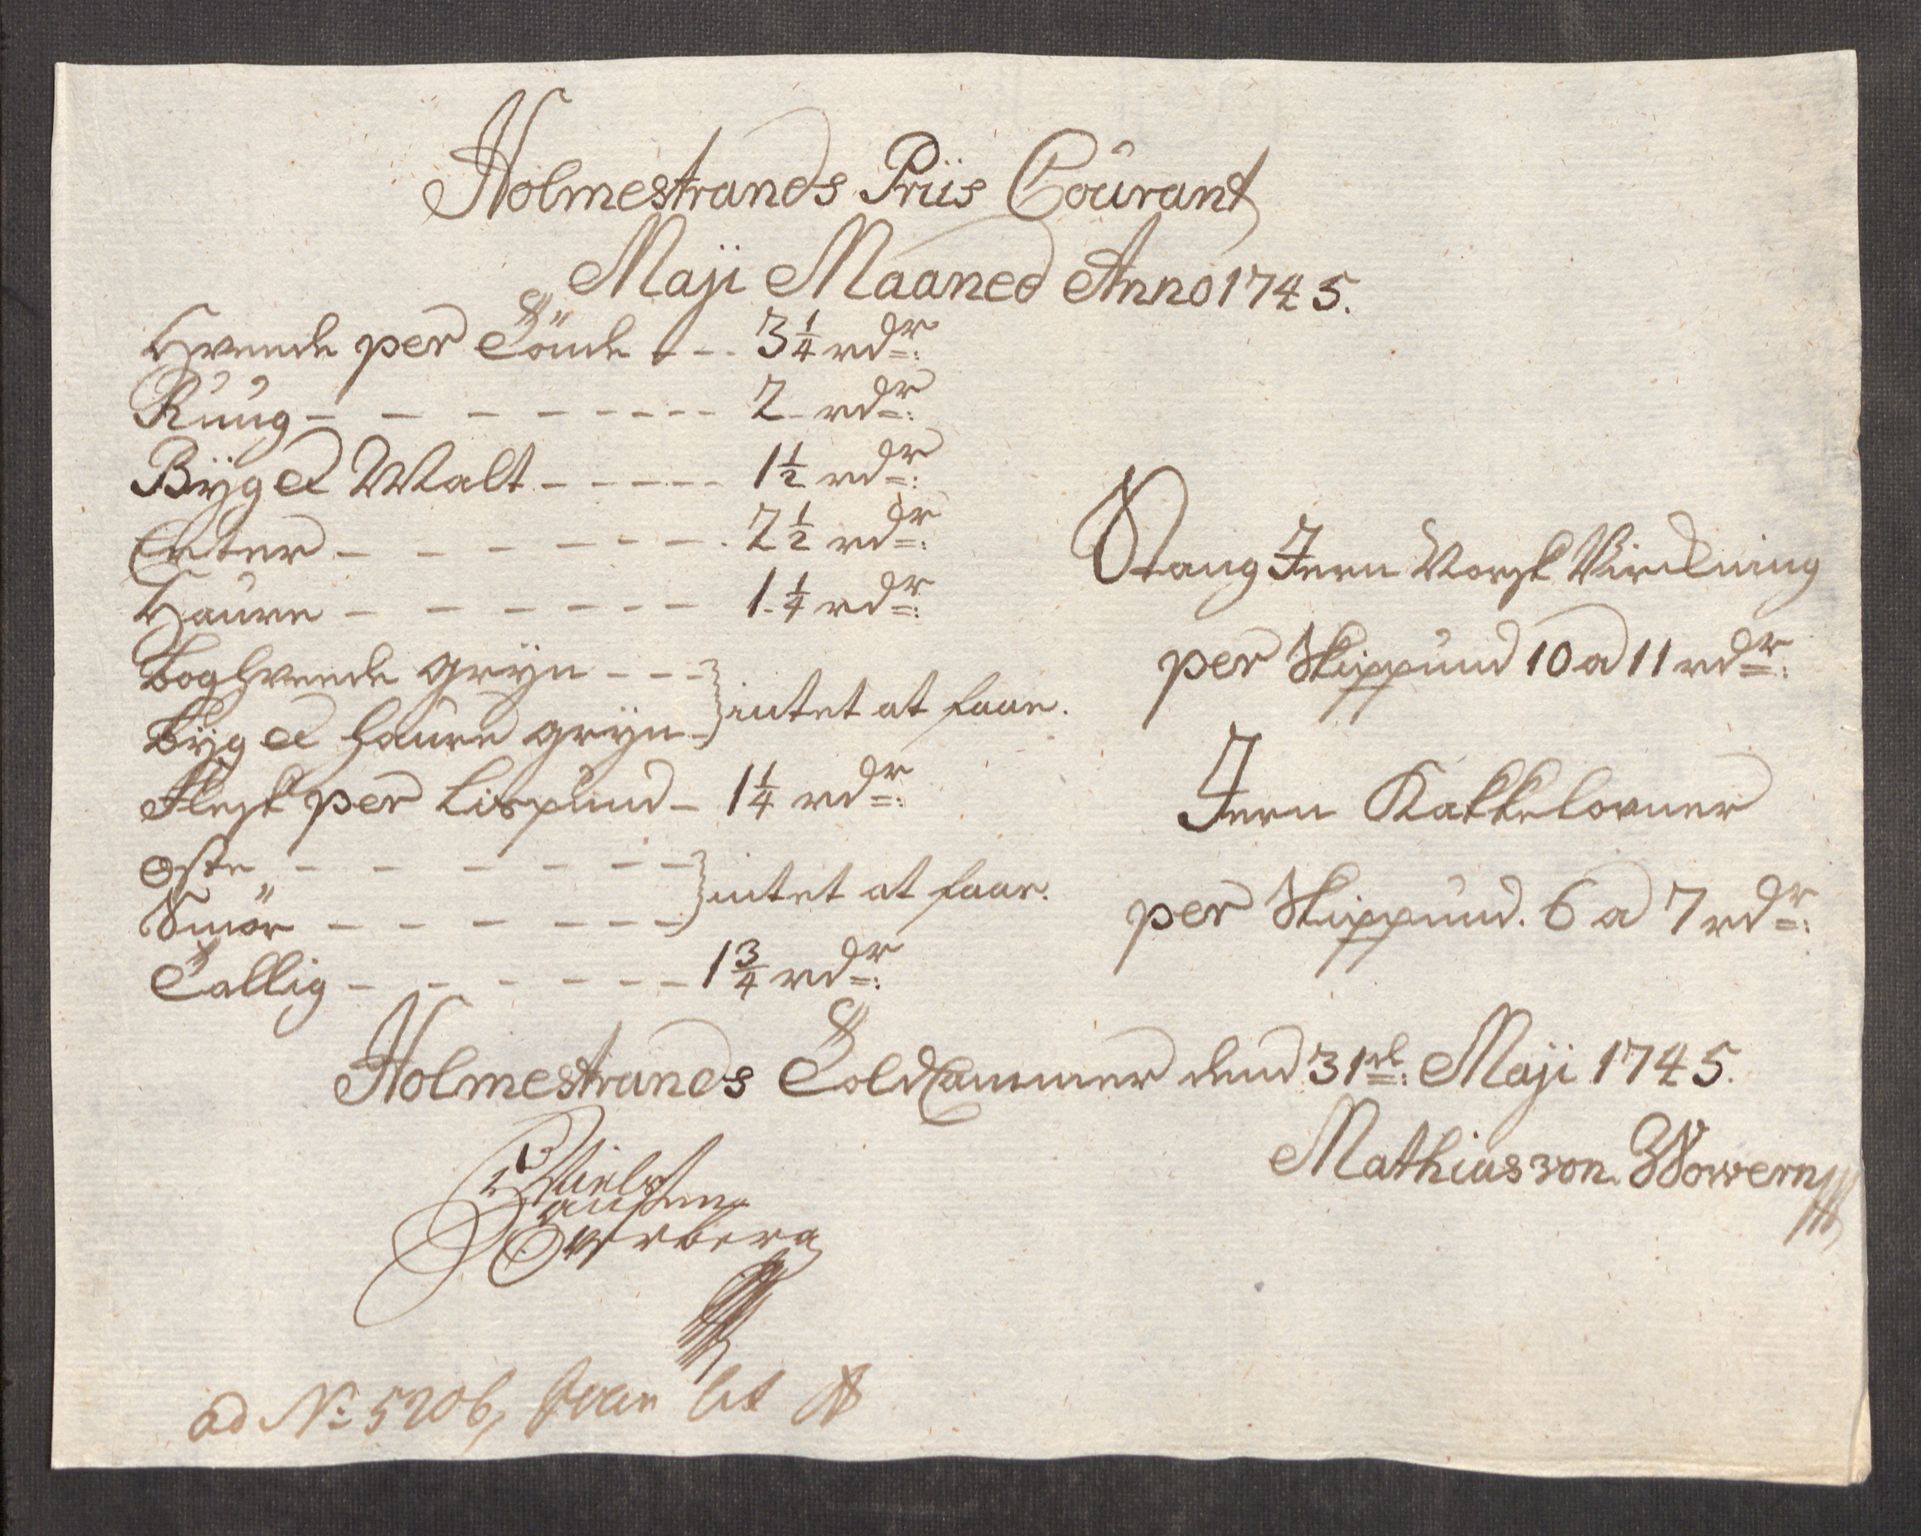 Holmestrands Priis Coürant
Maji Maaned Anno 1745.
Hveede per Tönde - - - 3 1/4 rdr:
Ruug - - - - - - - - 2 - rdr:
Byg et Malt - - - - - 1 1/2 rdr:
Erter - - - - - - - 2 1/2 rdr:
Haure - - - - - - - 1 1/4 rdr:
Boghveede gryn - - -
Byg et haure gryn - } intet at faae.
Flesk per Lispund - 1 1/4 rdr:
Oste - - - - - - -
Smör - - - - - - - } intet at faae.
Tallig - - - - - - 1 3/4 rdr:
Stang Jern Norsk Virckning
per Skippund 10 a 11 rdr:
Jern Kakkelovner
per Skippund. 6 a 7 rdr:
Holmestrands Told Cammer dend 31te: Maji 1745.
Mathias von Wowern
Niels
Hansen
ad No: 5206, lit A